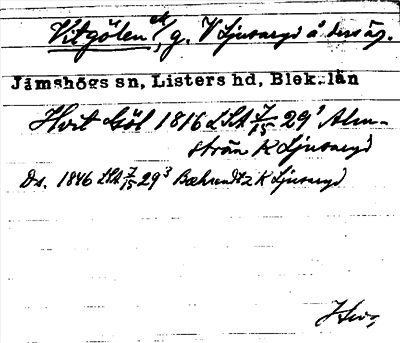 Vitgölen el., g. V Ljusaryd å dess äg.
Jämshögs sn, Listers hd, Blek. län
Hvit Göl 1816 LSA 7/15 29¹ Alm-
strän K Ljusaryd
Ds. 1846 LSA 7/15 29³ Baehrendtz K Ljusaryd